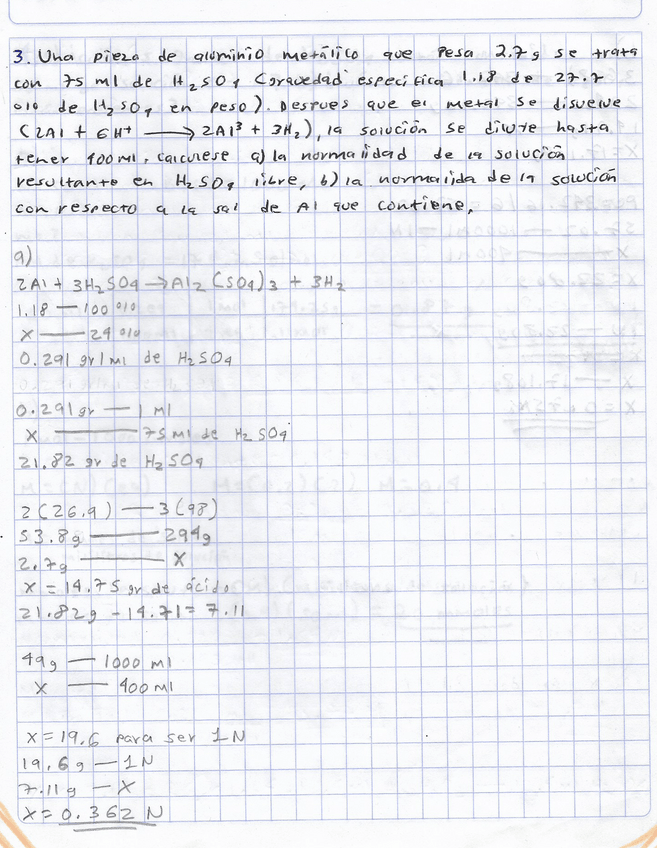 3. Una pieza de aluminio metálico que pesa 2.7g se trata
con 75 ml de H2SO4 (gravedad especifica 1.18 de 27.7
o/o de H2SO4 en peso). Despues que el metal se disuelve
(2Al + 6H+ → 2Al3 + 3H2), la solución se diluye hasta
tener 400ml, calculese a) la normalidad de la solución
resultante en H2SO4 libre, b) la normalida de la solución
con respecto a la sal de Al que contiene.
a)
2Al + 3H2SO4 → Al2(SO4)3 + 3H2
1.18 — 100 o/o
X — 24 o/o
0.291 gr/ml de H2SO4
0.291 gr — 1 ml
X — 75 ml de H2SO4
21.82 gr de H2SO4
2(26.9) — 3(98)
53.8g — 294g
2.7g — X
X = 14.75 gr de ácido
21.82g - 14.71 = 7.11
49g — 1000 ml
X — 400 ml
X = 19.6 para ser 1N
19.6g — 1N
7.11g — X
X = 0.362 N